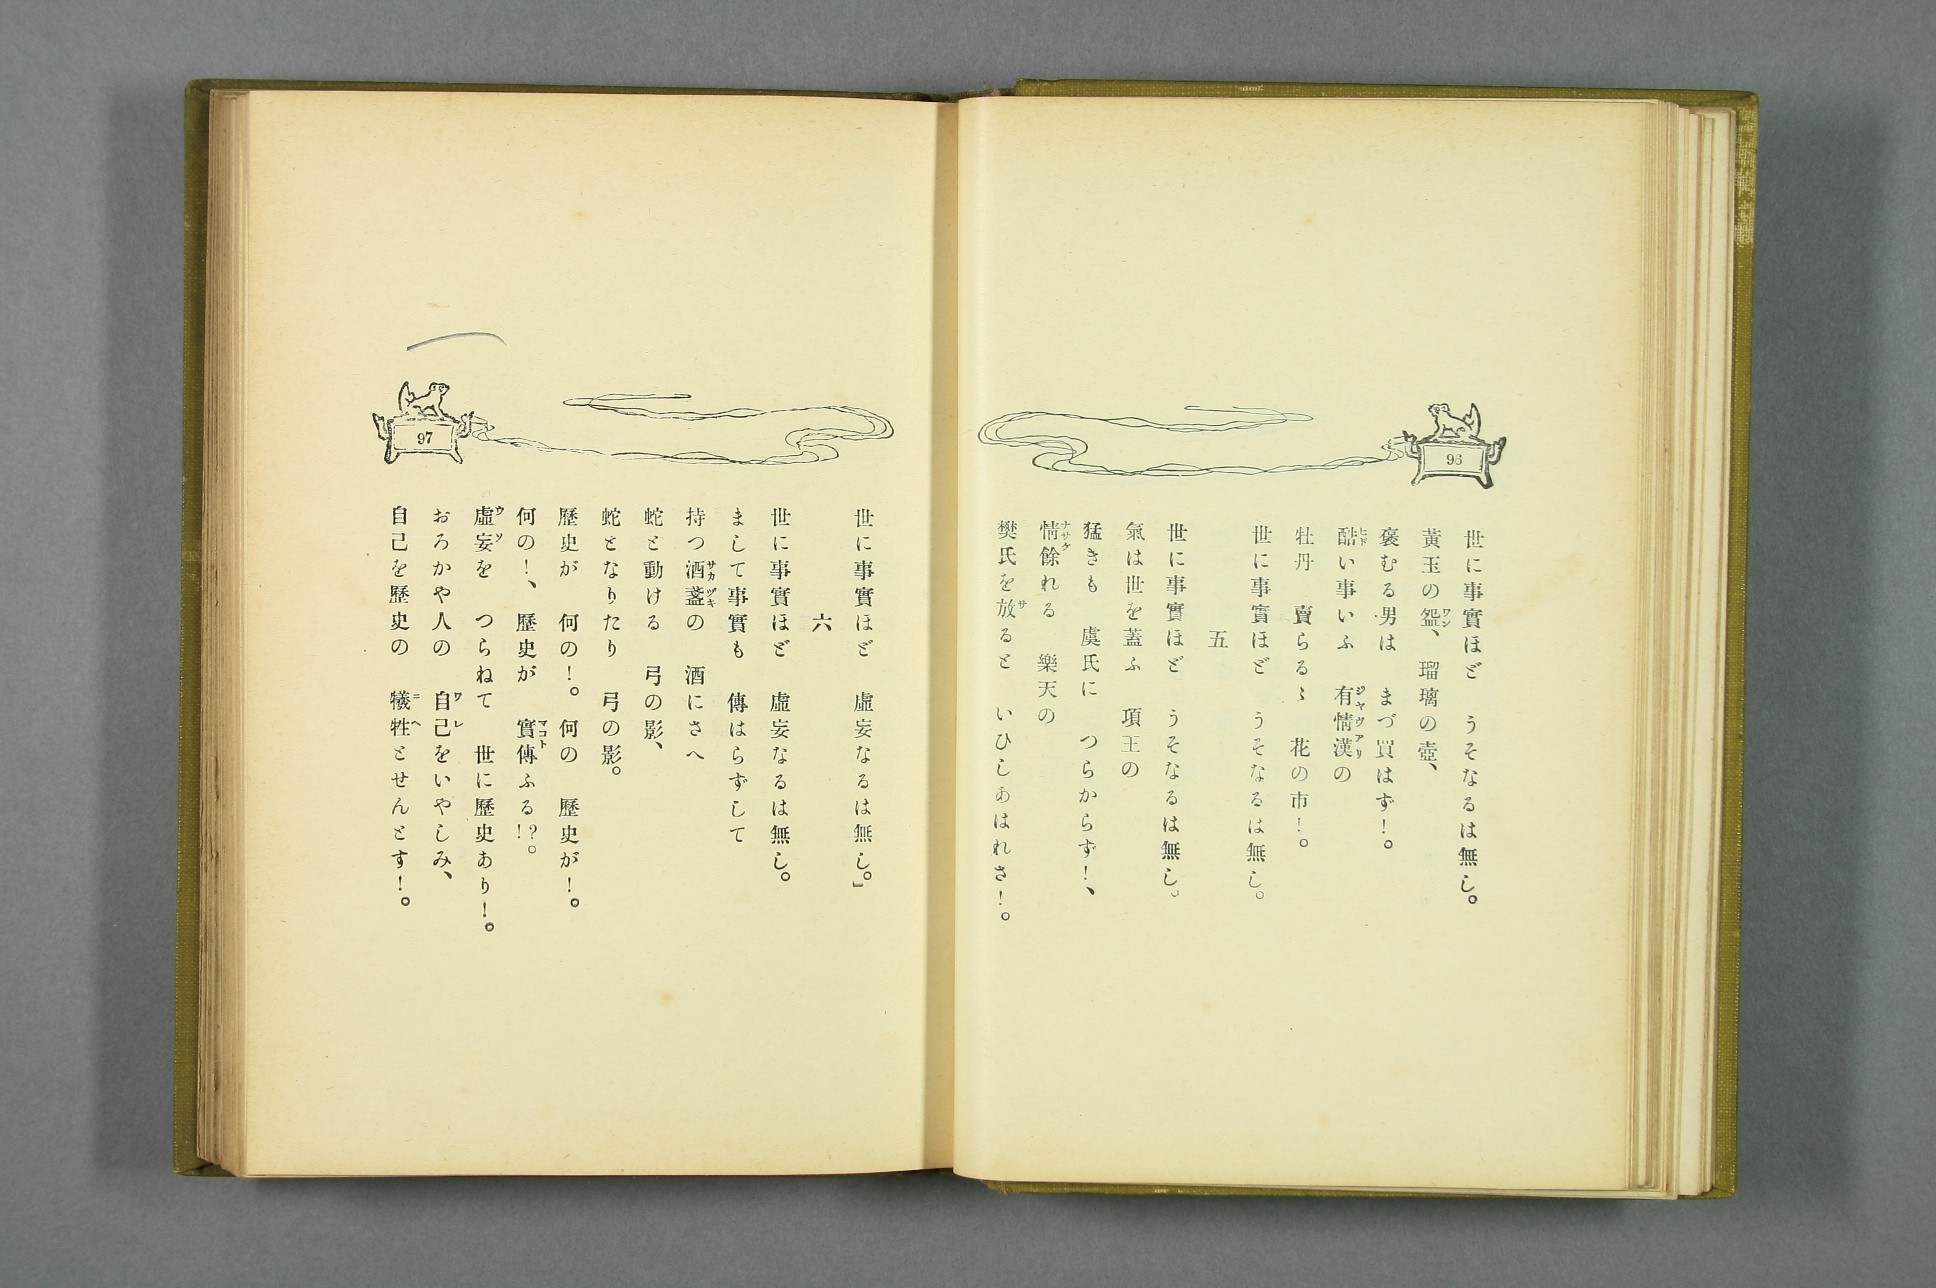 96
世に事實ほど　うそなるは無し。
黃玉の盌、瑠璃の壺、
褒むる男は　まづ買はず！。
酷い事いふ　有情漢の
牡丹　賣らるゝ　花の市！。
世に事實ほど　うそなるは無し。
五
世に事實ほど　うそなるは無し。
氣は世を蓋ふ　項王の
猛きも　虞氏に　つらからず！、
情餘れる　樂天の
樊氏を放ると　いひしあはれさ！。
97
世に事實ほど　虛妄なるは無し。」
六
世に事實ほど　虛妄なるは無し。
まして事實も　傳はらずして
持つ酒盞の　酒にさへ
蛇と動ける　弓の影、
蛇となりたり　弓の影。
歷史が　何の！。何の　歷史が！。
何の！、歷史が　實傳ふる！？。
虛妄を　つらねて　世に歷史あり！。
おろかや人の　自己をいやしみ、
自己を歷史の　犧牲とせんとす！。